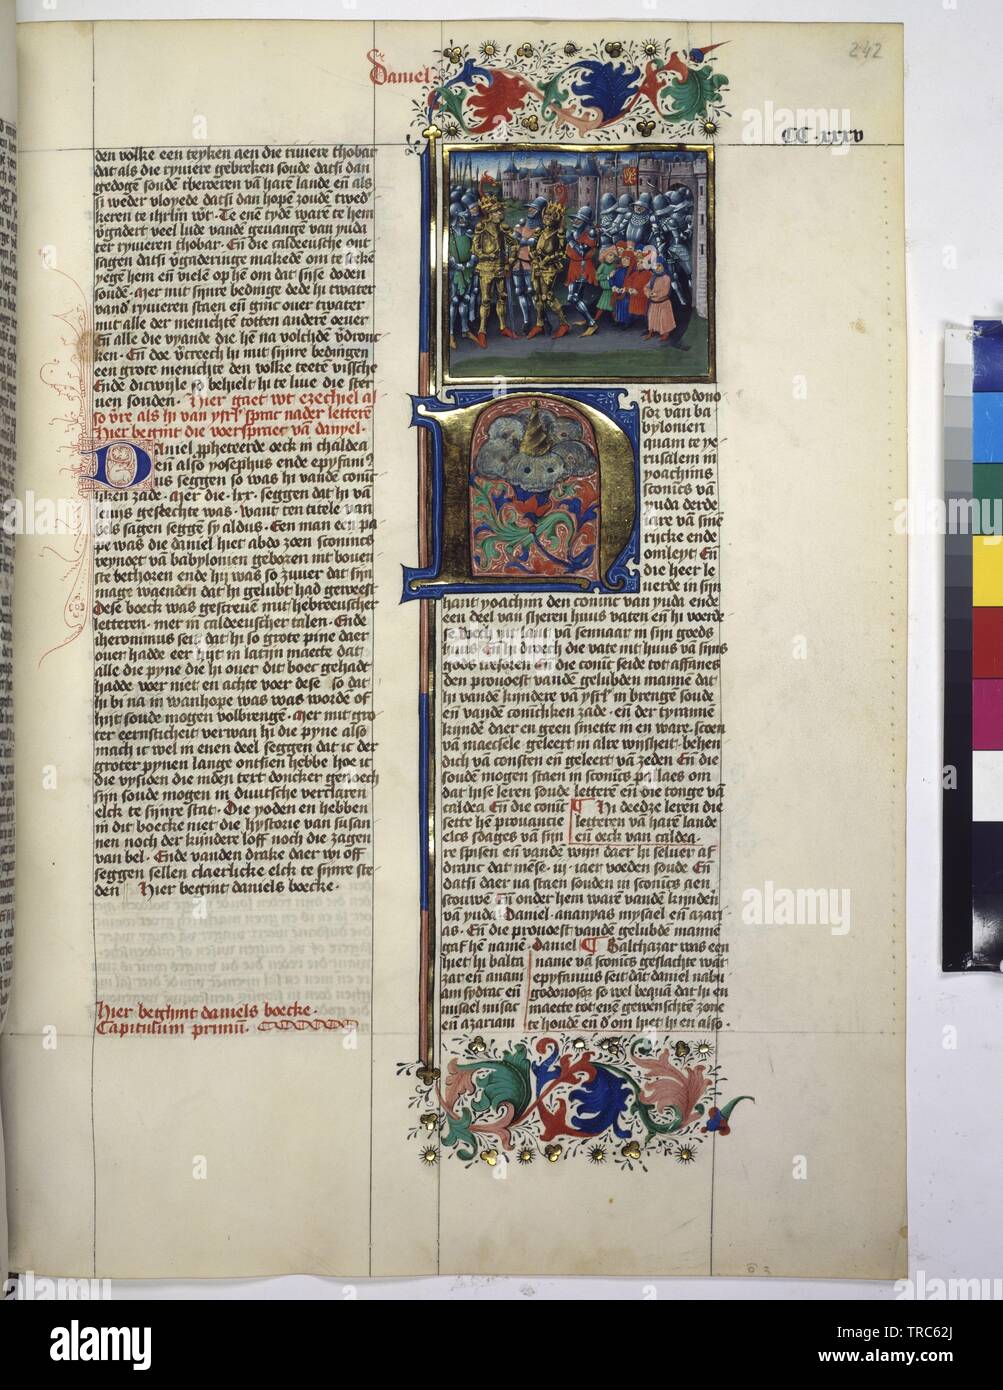 Daniel
242
CC·xxxv
den volke een teyken aen die riviere thobar
dat als die ryviere gebreken soude datsi dan
gedogen soudē vā harē lande eñ als
si weder vloyede datsi dan hope soudē
keren te Te enē tyde ware te hem
veel lude vandē geuangen van yuda
ter ryuieren thobar · Eñ die caldeeusche ont
sagen datsi makedē om te
hem eñ vielē op hē om dat sise doden
soudē · Mer mit sijnre bedinge dede hi twater
vandē ryvieren staen eñ ginc over twater
mit alle der menichtē totten anderē oever
Eñ alle die vyande die hē na volchdē
ken · Eñ doe hi mit sijnre bedingen
een grote menichte den volke teetē vissche
Ende dicwijle so behielt hi te live die ster
ven souden · Hier gaet wt ezechiel al
so als hi van sprac nader letterē
Hier begint die voerspraec vā danyel ·
Daniel ppheteerde oeck in chaldea
eñ also yosephus ende epyfani
us seggen so was hi vandē coninc
liken zade · Mer die · lxx · seggen dat hi vā
levijs geslechte was · want ten titele van
bels sagen seggē sy aldus · Een man een pa
pe was die daniel hiet abdo zoen sconincs
van babylonien geboren mit boven
ste bethoren ende hi was so zuver dat sijn
mage waenden dat hi gelubt had geweest
Dese boeck was gescreuē mit hebreeuscher
letteren · mer in caldeeuscher talen · Ende
iheronimus seit dat hi so grote pine daer
over hadde eer hijt in latijn maecte dat
alle die pyne die hi over dit boec gehadt
hadde voer niet en achte voer dese so dat
hi bi na in wanhope was was worde of
hijt soude mogen volbrengē · Mer mit gro
ter eernsticheit verwan hi die pyne also
mach ic wel in enen deel seggen dat ic der
groter pynen lange ontsien hebbe hoe ic
die vysiden die mden tert doncker genoech
sijn soude mogen in duutsche verclaren
elck te sijnre stat · Die yoden en hebben
in dit boecke niet die hystorie van susan
nen noch der kyndere loff noch die zagen
van bel · Ende vanden drake daer wi off
seggen sellen claerlicke elck te sijnre ste
den Hier begint daniels boecke ·
Hier beghint daniels boecke ·
Capitulum primū ·
Nabugodono
sor van ba
bylonien
quam te ye
rusalem in
yoachims
sconics vā
yuda derde
iare vā sinē
rijcke ende
omleyt Eñ
die heer le
verde in sijn
hant yoachim den coninc van yuda ende
een deel van sheren huus vaten eñ hi voerde
se wech int lant vā sennaar in sijn goeds
huus Eñ hi droech die vate int huus vā sijns
gods tresoren Eñ die coninc seide tot affanes
den provoest vandē gelubden manne dat
hi vandē kyndere vā in brengē soude
eñ vandē conincliken zade · eñ der tyranne
kijndē daer en geen smette in en ware · scoen
vā maecsele geleert in alre wijsheit · behen
dich vā consten eñ geleert vā zeden Eñ die
soude mogen staen in sconincs pallaes om
dat hise leren soude letterē eñ die tonge vā
caldea Eñ die coninc
sette hē provancie
elcs sdages vā sijn
Hi deedze leren die
letteren vā harē lande
eñ oeck van caldea ·
re spisen eñ vandē wijn daer hi selver af
dranc dat mēse · iij · iaer voeden soude Eñ
datsi daer na staen souden in sconics aen
scouwē Eñ onder hem warē vandē kynderē
vā yuda · Daniel · ananyas mysael eñ azari
as · Eñ die provoest vandē gelubdē mannē
gaf hē namē · daniel
hiet hi balta
zar eñ anani
am sydrac eñ
misael misac
eñ azariam
Balthazar was een
name vā sconics geslachte want
epyfanius seit dat daniel nabu
godonosor so wel bequā dat hi en
maecte tot enē gewenschtē zone
te houdē eñ hiet hi en also ·
alamy
Image ID: TRC62J
www.alamy.com